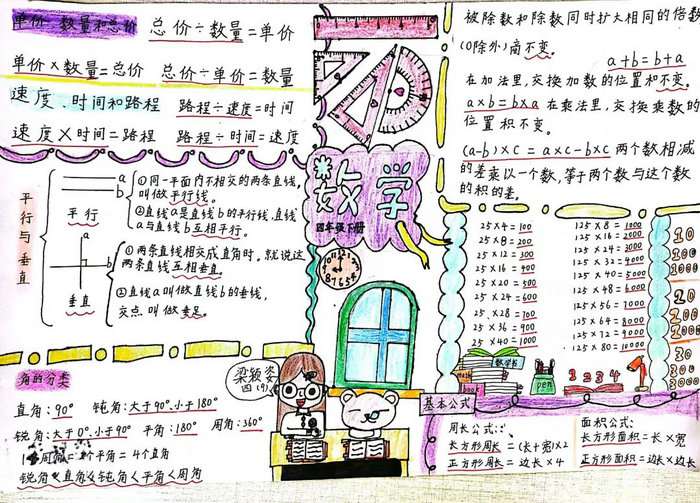 单价 数量和总价 总价÷数量=单价
单价×数量=总价 总价÷单价=数量
速度、时间和路程 路程÷速度=时间
速度×时间=路程 路程÷时间=速度
平行与垂直
a
b
平行
a
b
垂直
①同一平面内不相交的两条直线,
叫做平行线。
②直线a是直线b的平行线,直线
a与直线b互相平行。
①两条直线相交成直角时,就说这
两条直线互相垂直。
②直线a叫做直线b的垂线,
交点叫做垂足。
角的分类
直角:90° 钝角:大于90°小于180°
锐角:大于0°小于90° 平角:180° 周角:360°
周角=2个平角=4个直角
锐角<直角<钝角<平角<周角
数学
四年级下册
梁颖姿
四(9)
被除数和除数同时扩大相同的倍数
(0除外)商不变。
a+b=b+a
在加法里,交换加数的位置和不变。
a×b=b×a 在乘法里,交换乘数的
位置积不变。
(a-b)×c=a×c-b×c 两个数相减
的差乘以一个数,等于两个数与这个数
的积的差。
25×4=100
25×8=200
25×12=300
25×16=400
25×20=500
25×24=600
25×28=700
25×32=800
25×36=900
25×40=1000
125×8=1000
125×16=2000
125×24=3000
125×32=4000
125×40=5000
125×48=6000
125×56=7000
125×64=8000
125×72=9000
125×80=10000
10
100
1000
20
200
2000
30
300
3000
数学书
math
book
pen
1 2 3 4
基本公式
周长公式:
长方形周长=(长+宽)×2
正方形周长=边长×4
面积公式:
长方形面积=长×宽
正方形面积=边长×边长